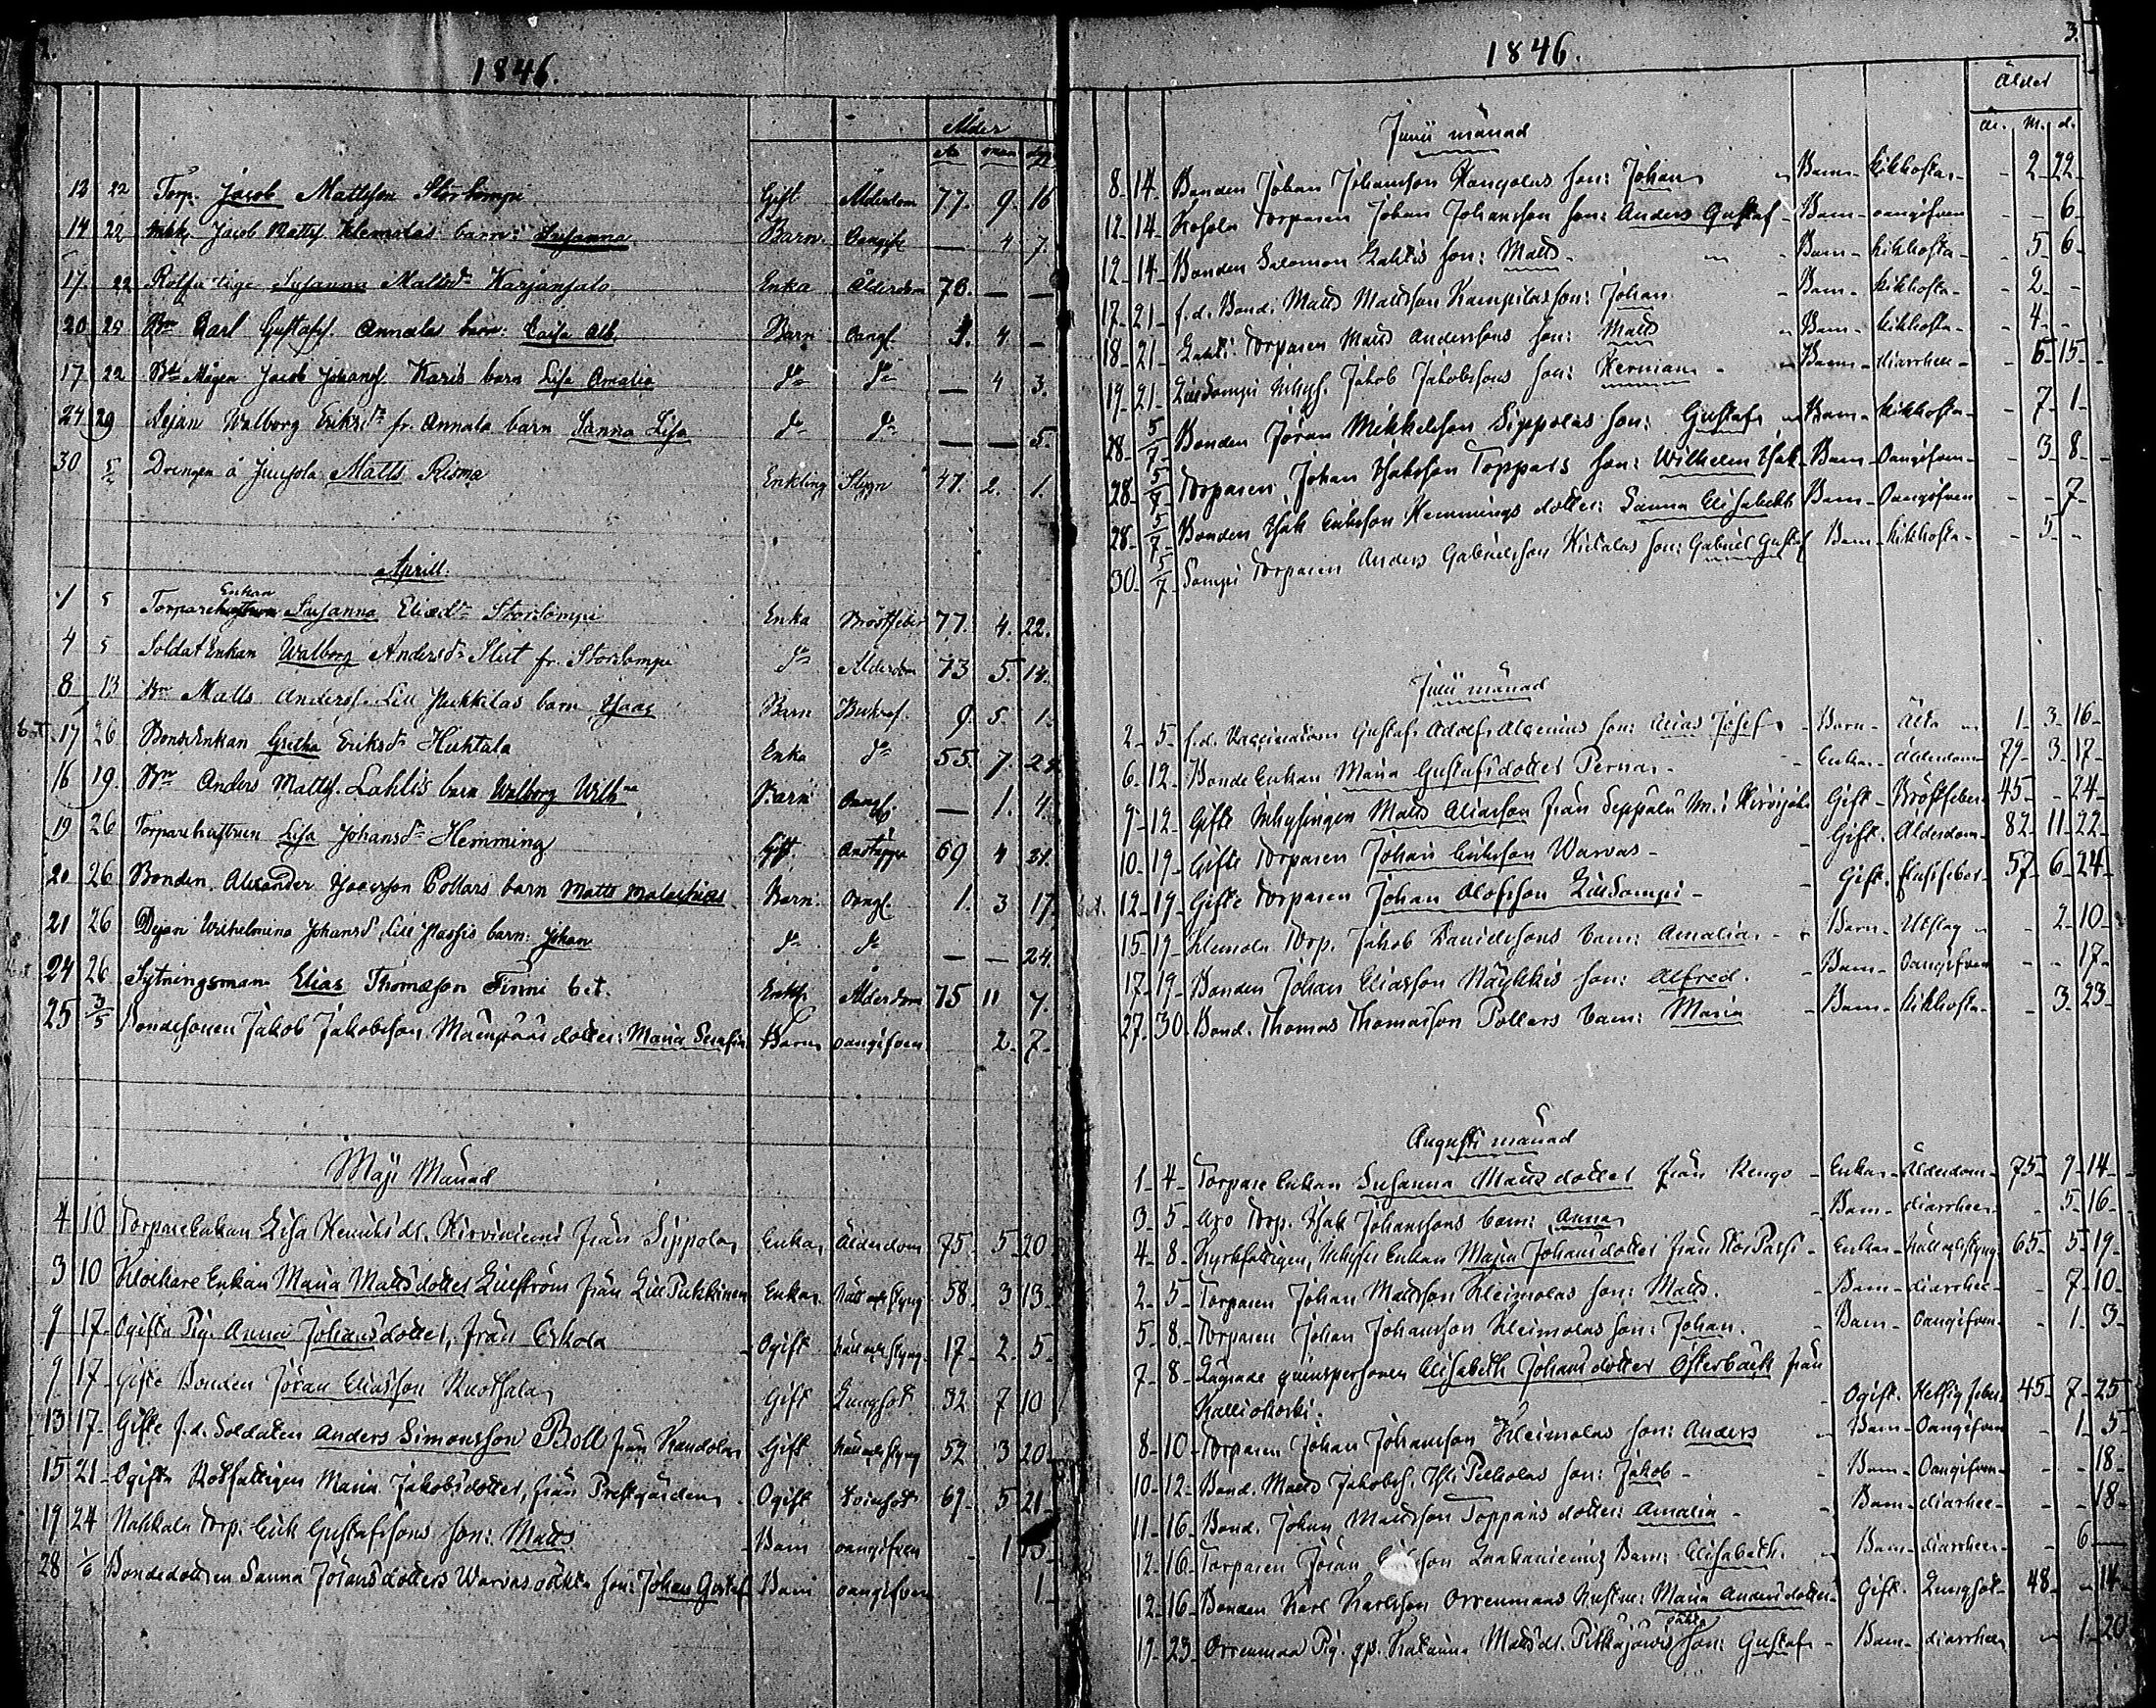 1846.
Ålder
år man dag
12 22 Torp. Jacob Mattsson Storsompi Gift Ålderdom 77. 9. 16
14 22 Jacob Matts. Klemolas barn: Susanna Barn. Oangif. — 4 7.
17. 22 Susanna Mattsdr Karjansalo Enka Ålderdom 78. — —
20 25 Bn Carl Gustafss. Annalas barn: Caisa Alb. Barn Oangf. 4 —
17 22 Jacob Johanss. Karis barn Lisa Amalia do do — 4 3.
24 29 Pejan Walborg Eriksdr fr. Annala barn Sanna Lisa do do — — 5.
30 Drengen å Junsola Matts Risma Enkling Stygn 47. 2. 1.
Aprill.
1 5 Torpare Enkan Susanna Eliædr Storsompi Enka Bröstfeber 77. 4. 22.
4 5 Soldat Enkan Walborg Andersdr Slut fr. Storsompi do Ålderdom 73 5. 14.
8 13 Bn Matts Anderss. Lill Pukkilas barn Isaac Barn 9. 5. 1.
b.t. 17 26 Bonde Enkan Gretha Eriksdr Huhtala Enka do 55. 7. 24.
16 19. Bn Anders Mattss. Lahtis barn Walborg Wilhna Barn Oangf. — 1. 4.
19 26 Torparehustrun Lisa Johansdr Hemming Gift. Andtäppa 69 4 21.
20 26 Bonden Alexander Isacsson Pollars barn Matts Malachias Barn. Oangf. 1. 3 17.
21 26 Pejan Wilhelmina Johansd. Lill Passis barn: Johan do do — — 24.
24 26 Sytningsman Elias Thomasson Finni b.t. Enkl. Ålderdom 75 11 7.
25 3/5 Bondesonen Jakob Jakobsson Mäenpääs dotter: Maria Serafia Barn oangifven 2. 7.
Maji Månad
4 10 Torpare Enkan Lisa Henriksdr. Hirviniemi från Sippola Enka Ålderdom 75. 5 20
3 10 Klockare Enkan Maria Mattsdotter Lillström från Lill Pukkinen Enka. Håll och styng 58. 3 13
9 17. Ogifta Pig. Anna Johansdotter, från Eskola Ogift Håll och styng 17. 2. 5.
9 17. Gifte Bonden Jöran Eliasson Ruotsala Gift Lungsot 32. 7 10
13 17. Gifte f.d. Soldaten Anders Simonsson Boll från Kandola Gift. Håll och styng 52 3 20
15 21 Ogifta Rotfattigen Maria Jakobsdotter, från Prestgården Ogift Tvinsot 69. 5 21
19 24 Nahkala Torp. Erik Gustafssons son: Matts Barn oangifven - 1 13
28 1/6 Bondedottren Sanna Jöransdotters Warvas oäkta son: Johan Gustaf Barn oangifven 1
3.
1846.
Ålder
år. M. d.
Junii månad
8 14. Bonden Johan Johansson Kangolas son: Johan Barn- kikhosta - 2 22
12 14. Torparen Johan Johansson son: Anders Gustaf Barn- oangifven - - 6
12 14 Bonden Salomon Lahtis son: Matts Barn- kikhosta - 5 6
17 21 f.d. Bond. Matts Mattsson Kampilas son: Johan Barn- kikhosta - 2 -
18 21 Lahti Torparen Matts Anderssons son: Matts Barn- kikhosta - 4 -
19 21 Lillsompi Inhys. Jakob Jakobssons son: Herman Barn- diarrhee - 5 15
28 5/7 Bonden Jöran Mikkelsson Sippolas son: Gustaf Barn- kikhosta - 7 1
28 5/7 Torparen Johan Isaksson Toppars son: Wilhelm Isak Barn- Oangifven - 3 8
28 5/7 Bonden Isak Eriksson Hemmings dotter: Sanna Elisabeth Barn- Oangifven - - 7
30 5/7 Sompi Torparen Anders Gabrielsson Kietalas son: Gabriel Gustaf Barn- kikhosta - 5 -
Julii månad
2 5 f.d. Vaccinatorn Gustaf Adolf Algenius son: Elias Josef Barn- Älta 1 3 16
6 12 Bonde Enkan Maria Gustafsdotter Perna Enka- ålderdom 79 3 17
9 12 Gifte Inhysingen Matts Eliasson från Seppälä Gift- Bröstfeber 45 - 24
10 19 Gifte Torparen Johan Eriksson Warvas Gift. Ålderdom 82 11 22
12 19 Gifte Torparen Johan Olofsson Lillsompi Gift. Flussfeber 57 6 24
15 19 Klemola Torp. Jakob Davidssons barn: Amalia Barn- Utslag - 2 10
17 19 Bonden Johan Eliasson Näykkis son: Alfred Barn- Oangifven - - 17
27 30 Bond. Thomas Thomasson Pollars barn: Maria Barn- kikhosta - 3 23
Augusti månad
1 4 Torpare Enkan Susanna Mattsdotter från Kengo Enka- Ålderdom 75 9 14
3 5 Axo Torp. Isak Johanssons barn: Anna Barn- diarrhee - 5 16
4 8 Kyrkfattigen, Inhyses Enkan Maria Johansdotter från Stor Passi Enka- Håll och styng 65 5 19
2 5 Torparen Johan Mattsson Kleimolas son: Matts Barn- diarrhee - 7 10
5 8 Torparen Johan Johansson Kleimolas son: Johan. Barn- Oangifven - 1 3
7 8 Lägrade qvinspersonen Elisabeth Johansdotter Österback från
Kalliokoski: Ogift. Hetsig feber 45 7 25
8 10 Torparen Johan Johansson Kleimolas son: Anders Barn- Oangifven - 1 5
10 12 Bond. Matts Jakobss. Pelkolas son: Jakob Barn- Oangifven - - 18
11 16 Bond. Johan Mattsson Toppars dotter: Amalia Barn- diarrhee - - 18
12 16 Torparen Jöran Laakaniemis Barn: Elisabeth Barn- diarrhee - 6 -
12 16 Bonden Karl Karlsson Orrenmaas hustru: Maria Andersdotter Gift. Lungsot 48 - 14
19 23 Orrenmaa Pig. Katarina Mattsdr. Pitkäjärvis oäkta son: Gustaf Barn- diarrhee - 1 20